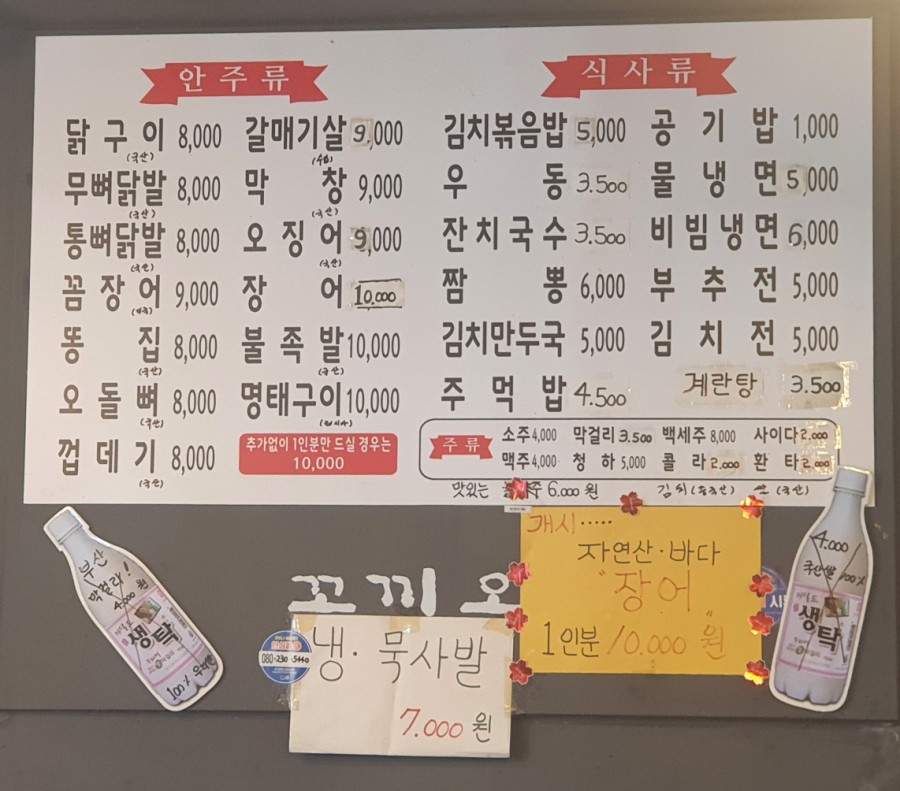 안주류
닭구이 8,000
(국산)
무뼈닭발 8,000
(국산)
통뼈닭발 8,000
(국산)
꼼장어 9,000
똥집 8,000
(국산)
오돌뼈 8,000
(국산)
껍데기 8,000
(국산)
갈매기살 9,000
막창 9,000
(국산)
오징어 9,000
(국산)
장어 10,000
불족발 10,000
(국산)
명태구이 10,000
(러시아)
추가없이 1인분만 드실 경우는
10,000
식사류
김치볶음밥 5,000
우동 3.500
잔치국수 3.500
짬뽕 6,000
김치만두국 5,000
주먹밥 4.500
공기밥 1,000
물냉면 5,000
비빔냉면 6,000
부추전 5,000
김치전 5,000
계란탕 3.500
주류
소주 4,000 막걸리 3.500 백세주 8,000 사이다 2.000
맥주 4,000 청하 5,000 콜라 2.000 환타 2.000
맛있는 주 6.000 원 김치(중국산) 쌀(국산)
부산
막걸리!
4.000 원
생탁
100%
꼬끼오
080-230-5440
냉·묵사발
7.000 원
개시·····
자연산·바다
"장어"
1인분 10.000 원
4.000
국산쌀 100%
생탁